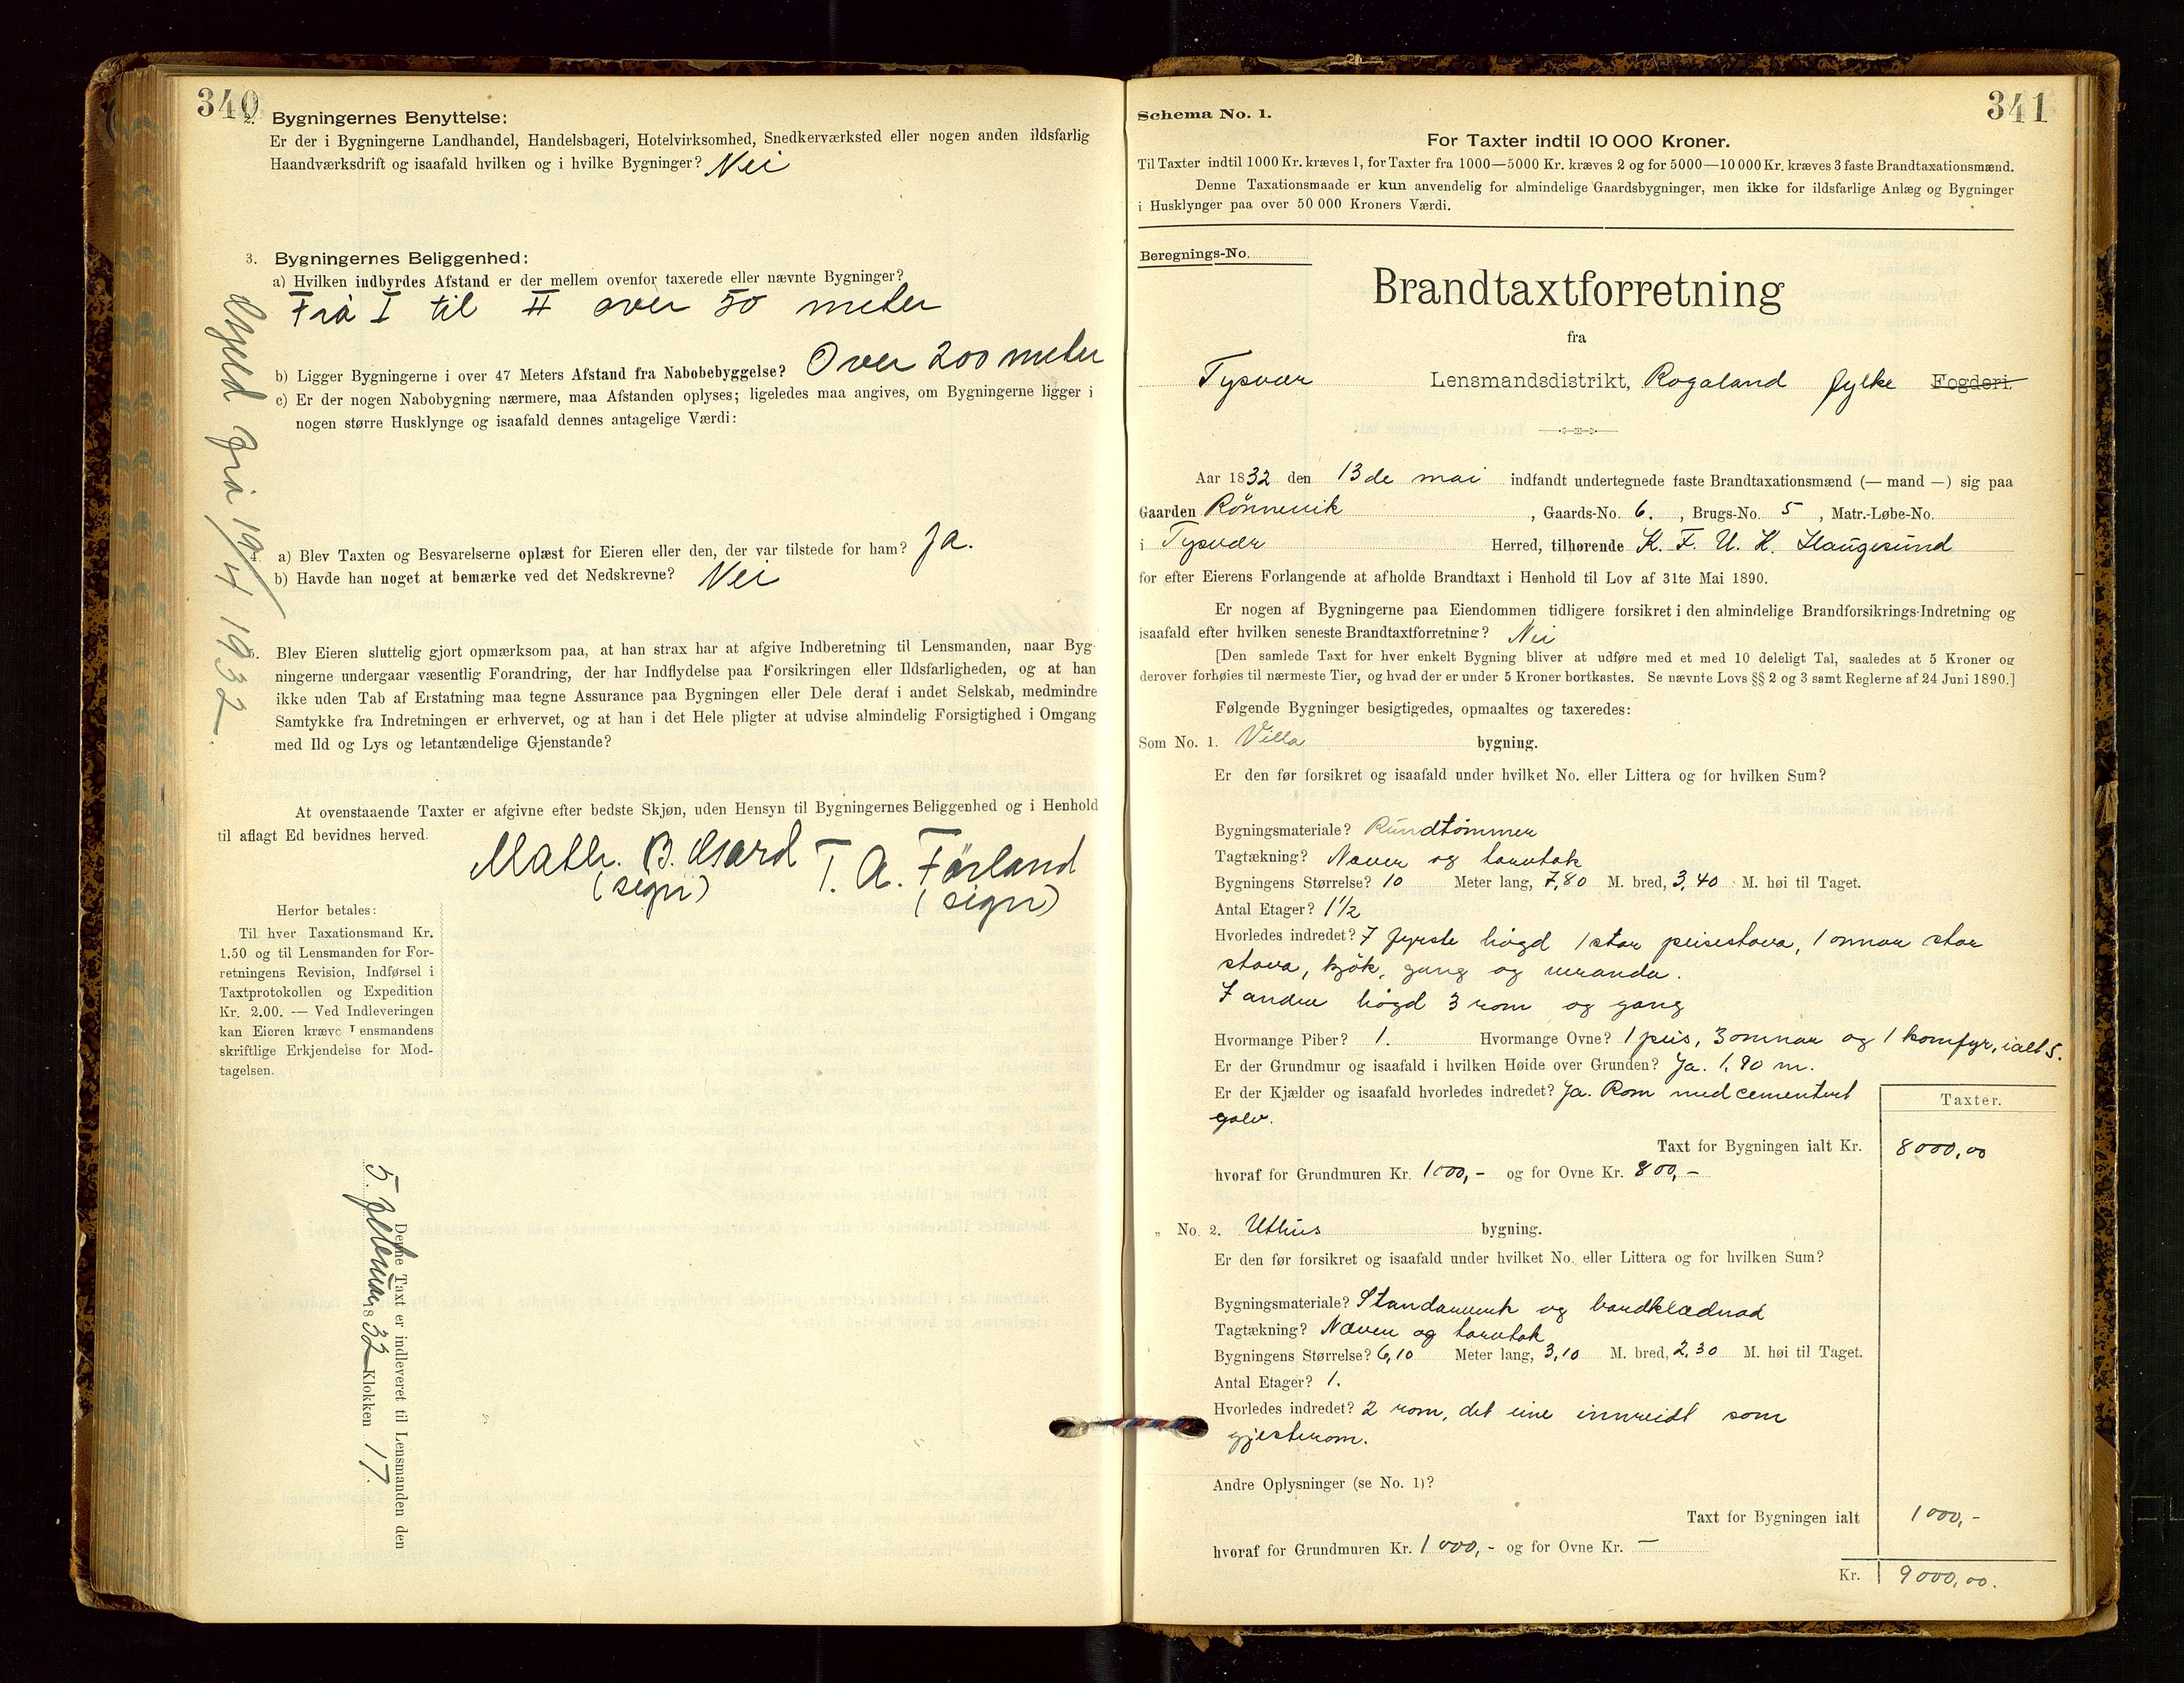 340
2. Bygningernes Benyttelse:
Er der i Bygningerne Landhandel, Handelsbageri, Hotelvirksomhed, Snedkerværksted eller nogen anden ildsfarlig
Haandværksdrift og isaafald hvilken og i hvilke Bygninger? Nei
3. Bygningernes Beliggenhed:
a) Hvilken indbyrdes Afstand er der mellem ovenfor taxerede eller nævnte Bygninger?
Frå I til II over 50 meter
b) Ligger Bygningerne i over 47 Meters Afstand fra Nabobebyggelse? Over 200 meter
c) Er der nogen Nabobygning nærmere, maa Afstanden oplyses; ligeledes maa angives, om Bygningerne ligger i
nogen større Husklynge og isaafald dennes antagelige Værdi:
4. a) Blev Taxten og Besvarelserne oplæst for Eieren eller den, der var tilstede for ham? Ja.
b) Havde han noget at bemærke ved det Nedskrevne? Nei
5. Blev Eieren sluttelig gjort opmærksom paa, at han strax har at afgive Indberetning til Lensmanden, naar Byg-
ningerne undergaar væsentlig Forandring, der har Indflydelse paa Forsikringen eller Ildsfarligheden, og at han
ikke uden Tab af Erstatning maa tegne Assurance paa Bygningen eller Dele deraf i andet Selskab, medmindre
Samtykke fra Indretningen er erhvervet, og at han i det Hele pligter at udvise almindelig Forsigtighed i Omgang
med Ild og Lys og letantændelige Gjenstande?
At ovenstaaende Taxter er afgivne efter bedste Skjøn, uden Hensyn til Bygningernes Beliggenhed og i Henhold
til aflagt Ed bevidnes herved.
Math. B. T. A. Førland
(sign) (sign)
Herfor betales:
Til hver Taxationsmand Kr.
1.50 og til Lensmanden for For-
retningens Revision, Indførsel i
Taxtprotokollen og Expedition
Kr. 2.00. — Ved Indleveringen
kan Eieren kræve Lensmandens
skriftlige Erkjendelse for Mod-
tagelsen.
Denne Taxt er indleveret til Lensmanden den
5. februar 1832 Klokken 17.
Gjeld frå 19/4 1932.
341
Schema No. 1.
For Taxter indtil 10 000 Kroner.
Til Taxter indtil 1000 Kr. kræves 1, for Taxter fra 1000—5000 Kr. kræves 2 og for 5000—10 000 Kr. kræves 3 faste Brandtaxationsmænd.
Denne Taxationsmaade er kun anvendelig for almindelige Gaardsbygninger, men ikke for ildsfarlige Anlæg og Bygninger
i Husklynger paa over 50 000 Kroners Værdi.
Beregnings-No.
Brandtaxtforretning
fra
Tysvær Lensmandsdistrikt, Rogaland fylke Fogderi.
Aar 1832 den 13de mai indfandt undertegnede faste Brandtaxationsmænd (— mand —) sig paa
Gaarden Rönnevik, Gaards-No. 6., Brugs-No. 5, Matr.-Løbe-No.
i Tysvær Herred, tilhørende K. F. U. K. Haugesund
for efter Eierens Forlangende at afholde Brandtaxt i Henhold til Lov af 31te Mai 1890.
Er nogen af Bygningerne paa Eiendommen tidligere forsikret i den almindelige Brandforsikrings-Indretning og
isaafald efter hvilken seneste Brandtaxtforretning? Nei
[Den samlede Taxt for hver enkelt Bygning bliver at udføre med et med 10 deleligt Tal, saaledes at 5 Kroner og
derover forhøies til nærmeste Tier, og hvad der er under 5 Kroner bortkastes. Se nævnte Lovs §§ 2 og 3 samt Reglerne af 24 Juni 1890.]
Følgende Bygninger besigtigedes, opmaaltes og taxeredes:
Som No. 1. Villa bygning.
Er den før forsikret og isaafald under hvilket No. eller Littera og for hvilken Sum?
Bygningsmateriale? Rundtömmer
Tagtækning? Never og torvtak
Bygningens Størrelse? 10 Meter lang, 7,80 M. bred, 3,40 M. høi til Taget.
Antal Etager? 1½
Hvorledes indredet? I fyrste högd 1 stor peisestova, 1 onnor stor
stova, kjök, gang og veranda.
I andre högd 3 rom og gang
Hvormange Piber? 1. Hvormange Ovne? 1 peis, 3 omnar og 1 komfyr, ialt 5.
Er der Grundmur og isaafald i hvilken Høide over Grunden? Ja. 1,90 m.
Er der Kjælder og isaafald hvorledes indredet? Ja. Rom med cementert
golv.
Taxter.
Taxt for Bygningen ialt Kr. 8000,00
hvoraf for Grundmuren Kr. 1000,- og for Ovne Kr. 800,-
„ No. 2. Uthus bygning.
Er den før forsikret og isaafald under hvilket No. eller Littera og for hvilken Sum?
Bygningsmateriale? Standarverk og bordklædnad
Tagtækning? Never og torvtak
Bygningens Størrelse? 6,10 Meter lang, 3,10 M. bred, 2,30 M. høi til Taget.
Antal Etager? 1.
Hvorledes indredet? 2 rom, det eine innreidt som
gjesterom.
Andre Oplysninger (se No. 1)?
Taxt for Bygningen ialt 1000,-
hvoraf for Grundmuren Kr. 1000,- og for Ovne Kr. —
Kr. 9000,00.